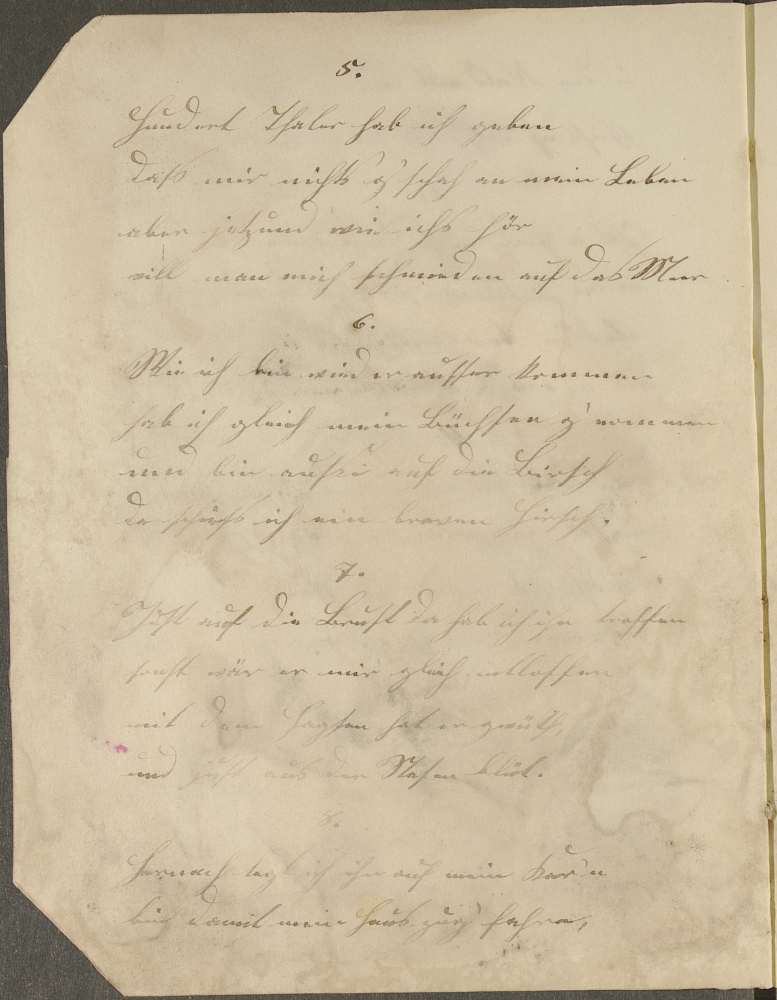 5.
Hundert Thaler hab ich geben
daß mir nichts g'schah an mein Leben
aber jetzund wie ichs hör
will man mich schmieden auf das Meer
6.
Wie ich bin wied er ausser kommen
hab ich gleich mein Büchsen g'nommen
und bin aussi auf die Birsch
da schieß ich ein braven Hirsch.
7.
Just auf die Brust da hab ich ihn troffen
sonst wär er mir gleich entloffen
mit dem hat er
und just aus der Nasen blüt.
8.
Hernach legt ich ihn auf mein Kar'n
bin damit mein Haus zug'fahrn,